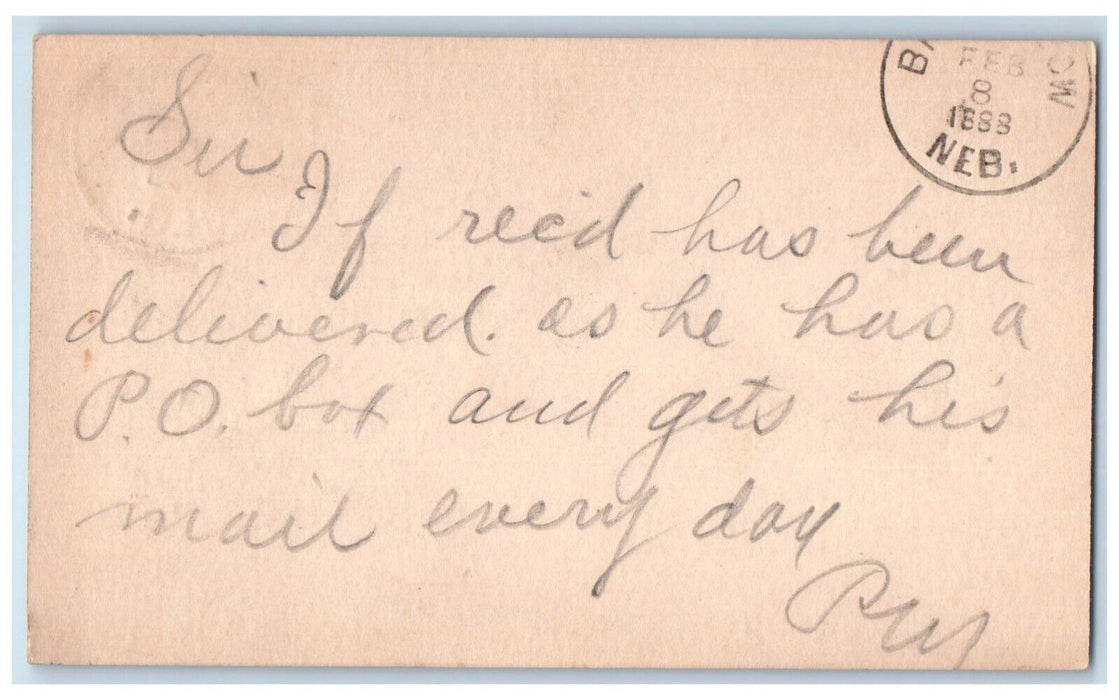 BA
OW
FEB
8
1888
NEB.
Sir
If rec'd has been
delivered. as he has a
P.O. box and gets his
mail every day